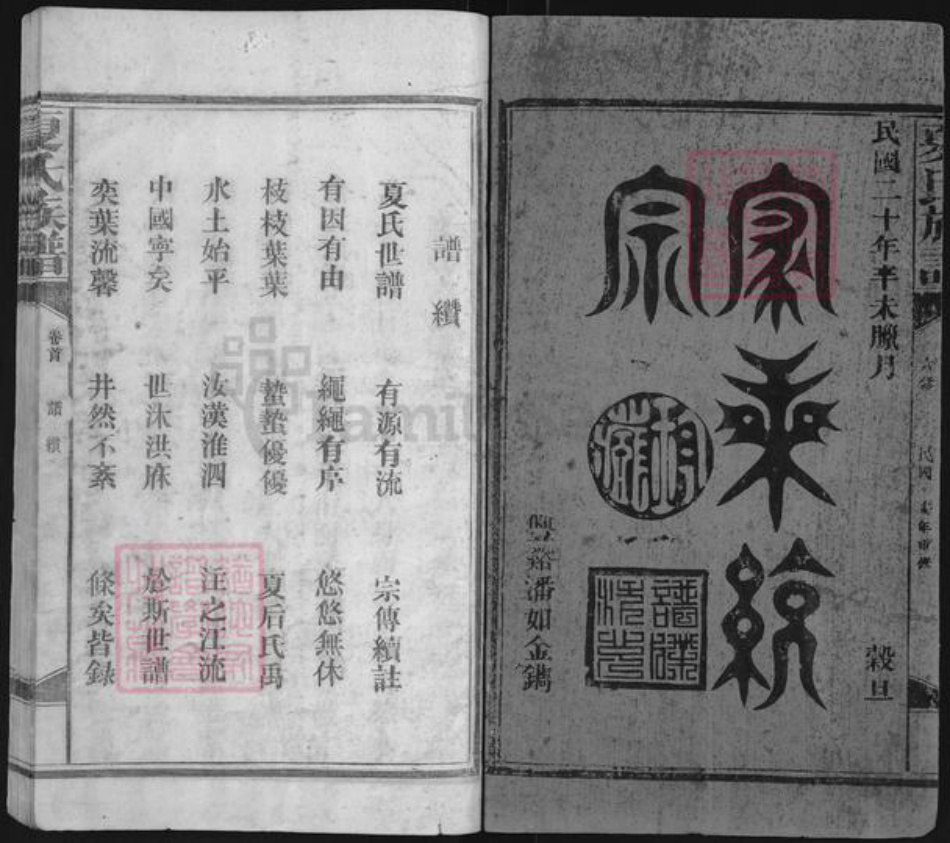 民國二十年辛未臘月 穀旦
家乘統
宗
潘如金鐫
夏氏族譜
譜纘
夏氏世譜 有源有流 宗傳續註
有因有由 繩繩有序 悠悠無休
枝枝葉葉 蟄蟄優優 夏后氏禹
水土始平 汝漢淮泗 注之江流
中國寧矣 世沐洪庥 於斯世譜
奕葉流馨 井然不紊 條矣皆錄
夏氏族譜 卷首 譜纘